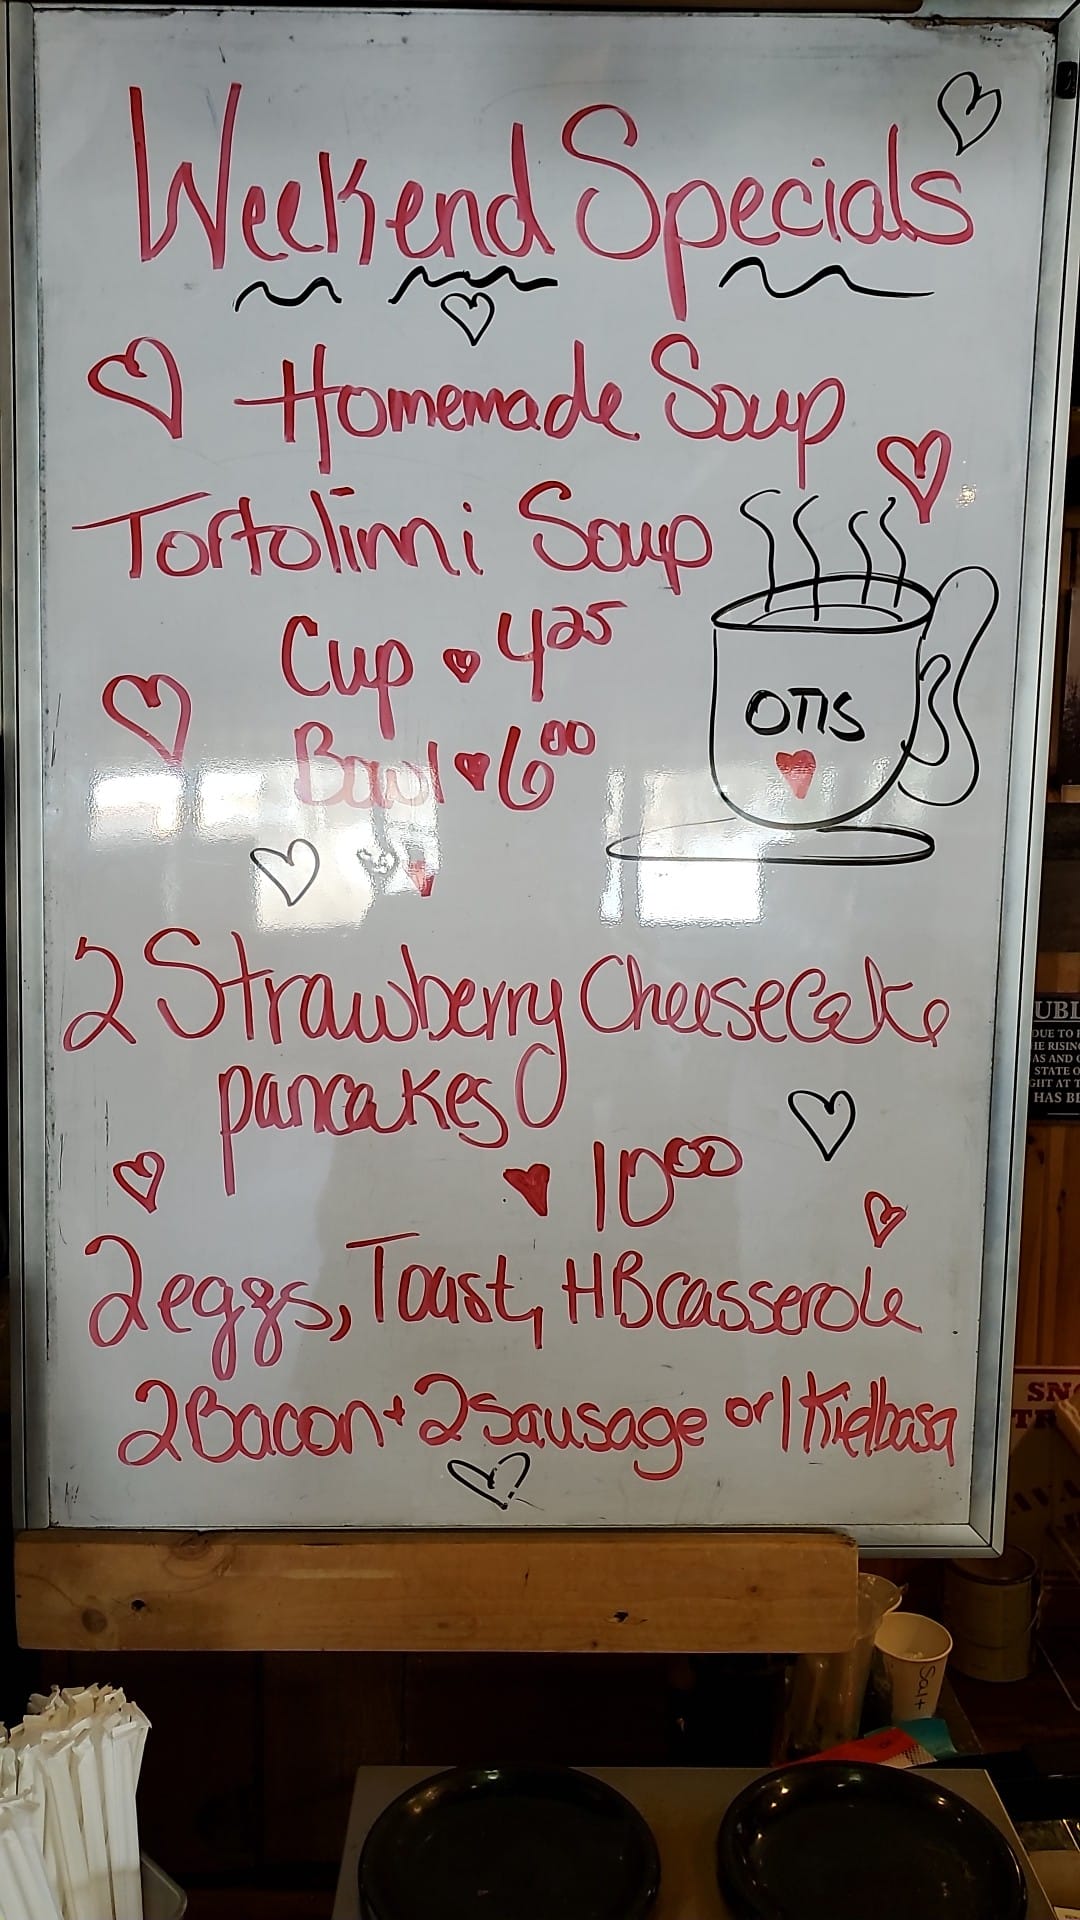 Weekend Specials
Homemade Soup
Tortolinni Soup
Cup 4.25
Bowl 6.00
OTIS
2 Strawberry CheeseCake
pancakes
10.00
2 eggs, Toast, HB casserole
2 Bacon + 2 Sausage or 1 Kielbasa
UBL
DUE TO
HE RISIN
AS AND
STATE O
GHT AT T
HAS BE
SN
TR
Salt